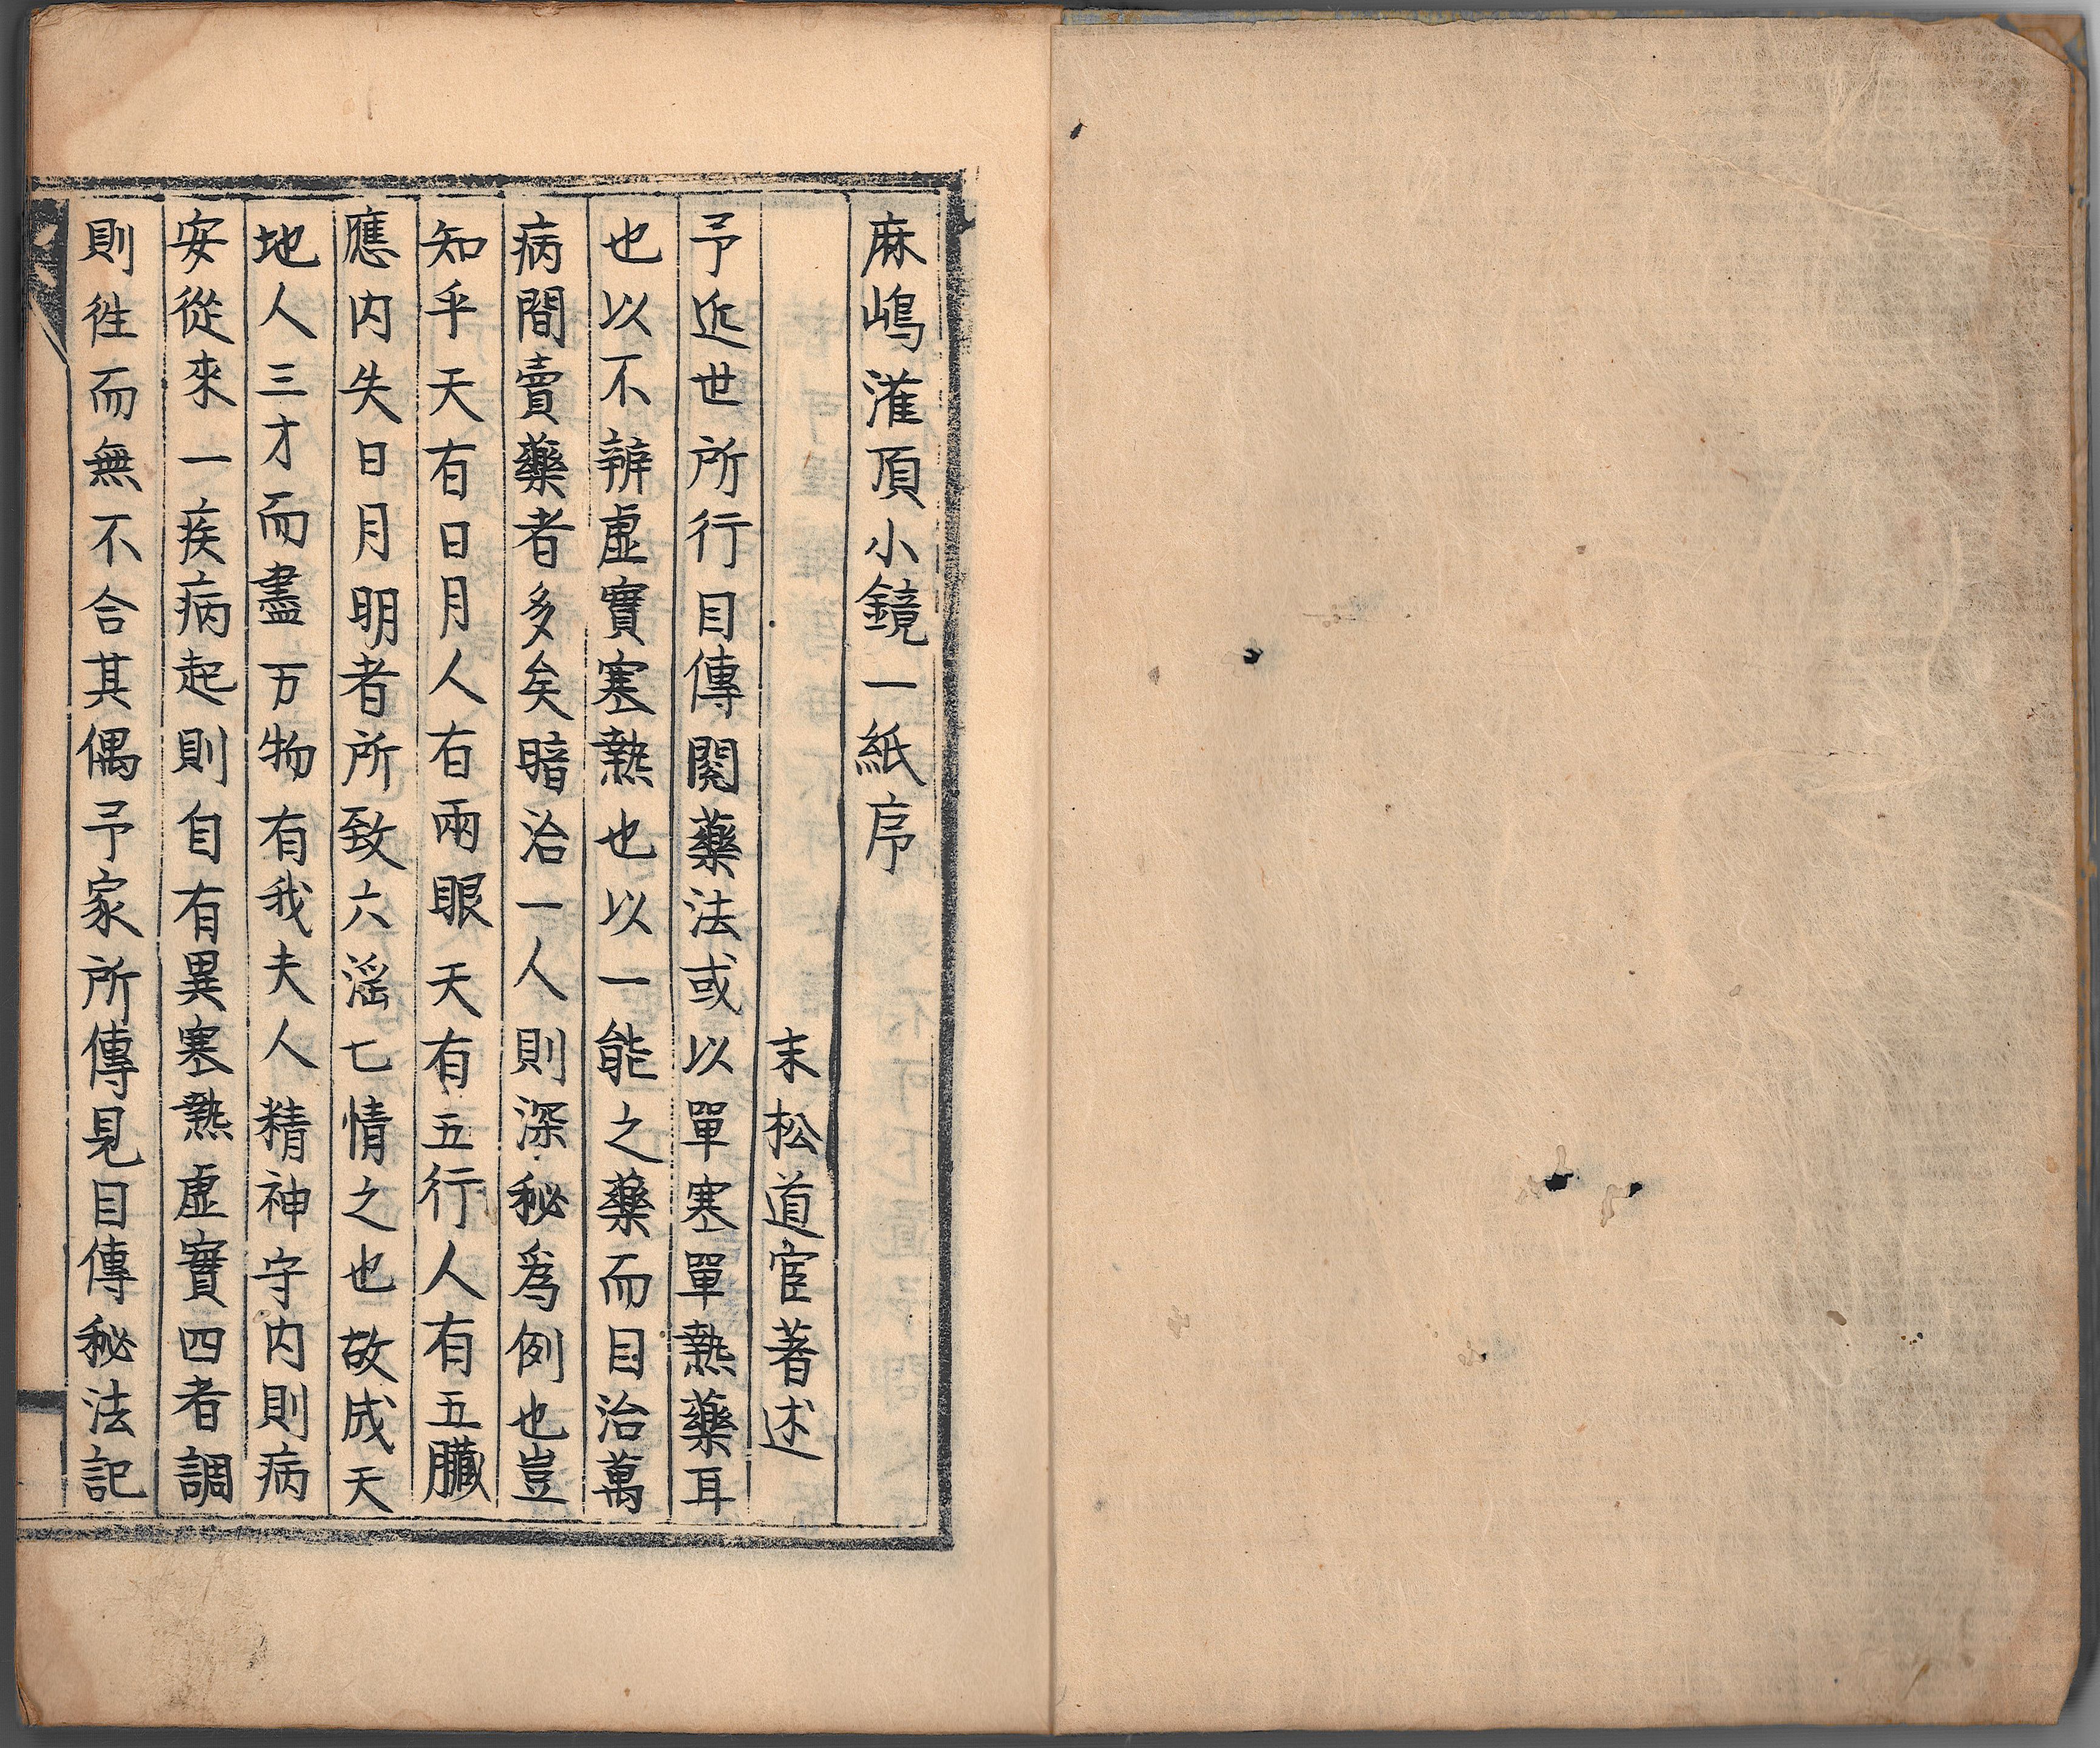 麻嶋灌頂小鏡一紙序
末松道宦著述
予近世所行目傳閱藥法或以單寒單熱藥耳
也以不辨虛實寒熱也以一能之藥而目治萬
病間賣藥者多矣暗治一人則深秘為例也豈
知乎天有日月人有兩眼天有五行人有五臟
應內失日月明者所致六滛七情之也故成天
地人三才而盡万物有我夫人精神守内則病
安從來一疾病起則自有異寒熱虛實四者調
則徃而無不合其偶予家所傳見目傳秘法記